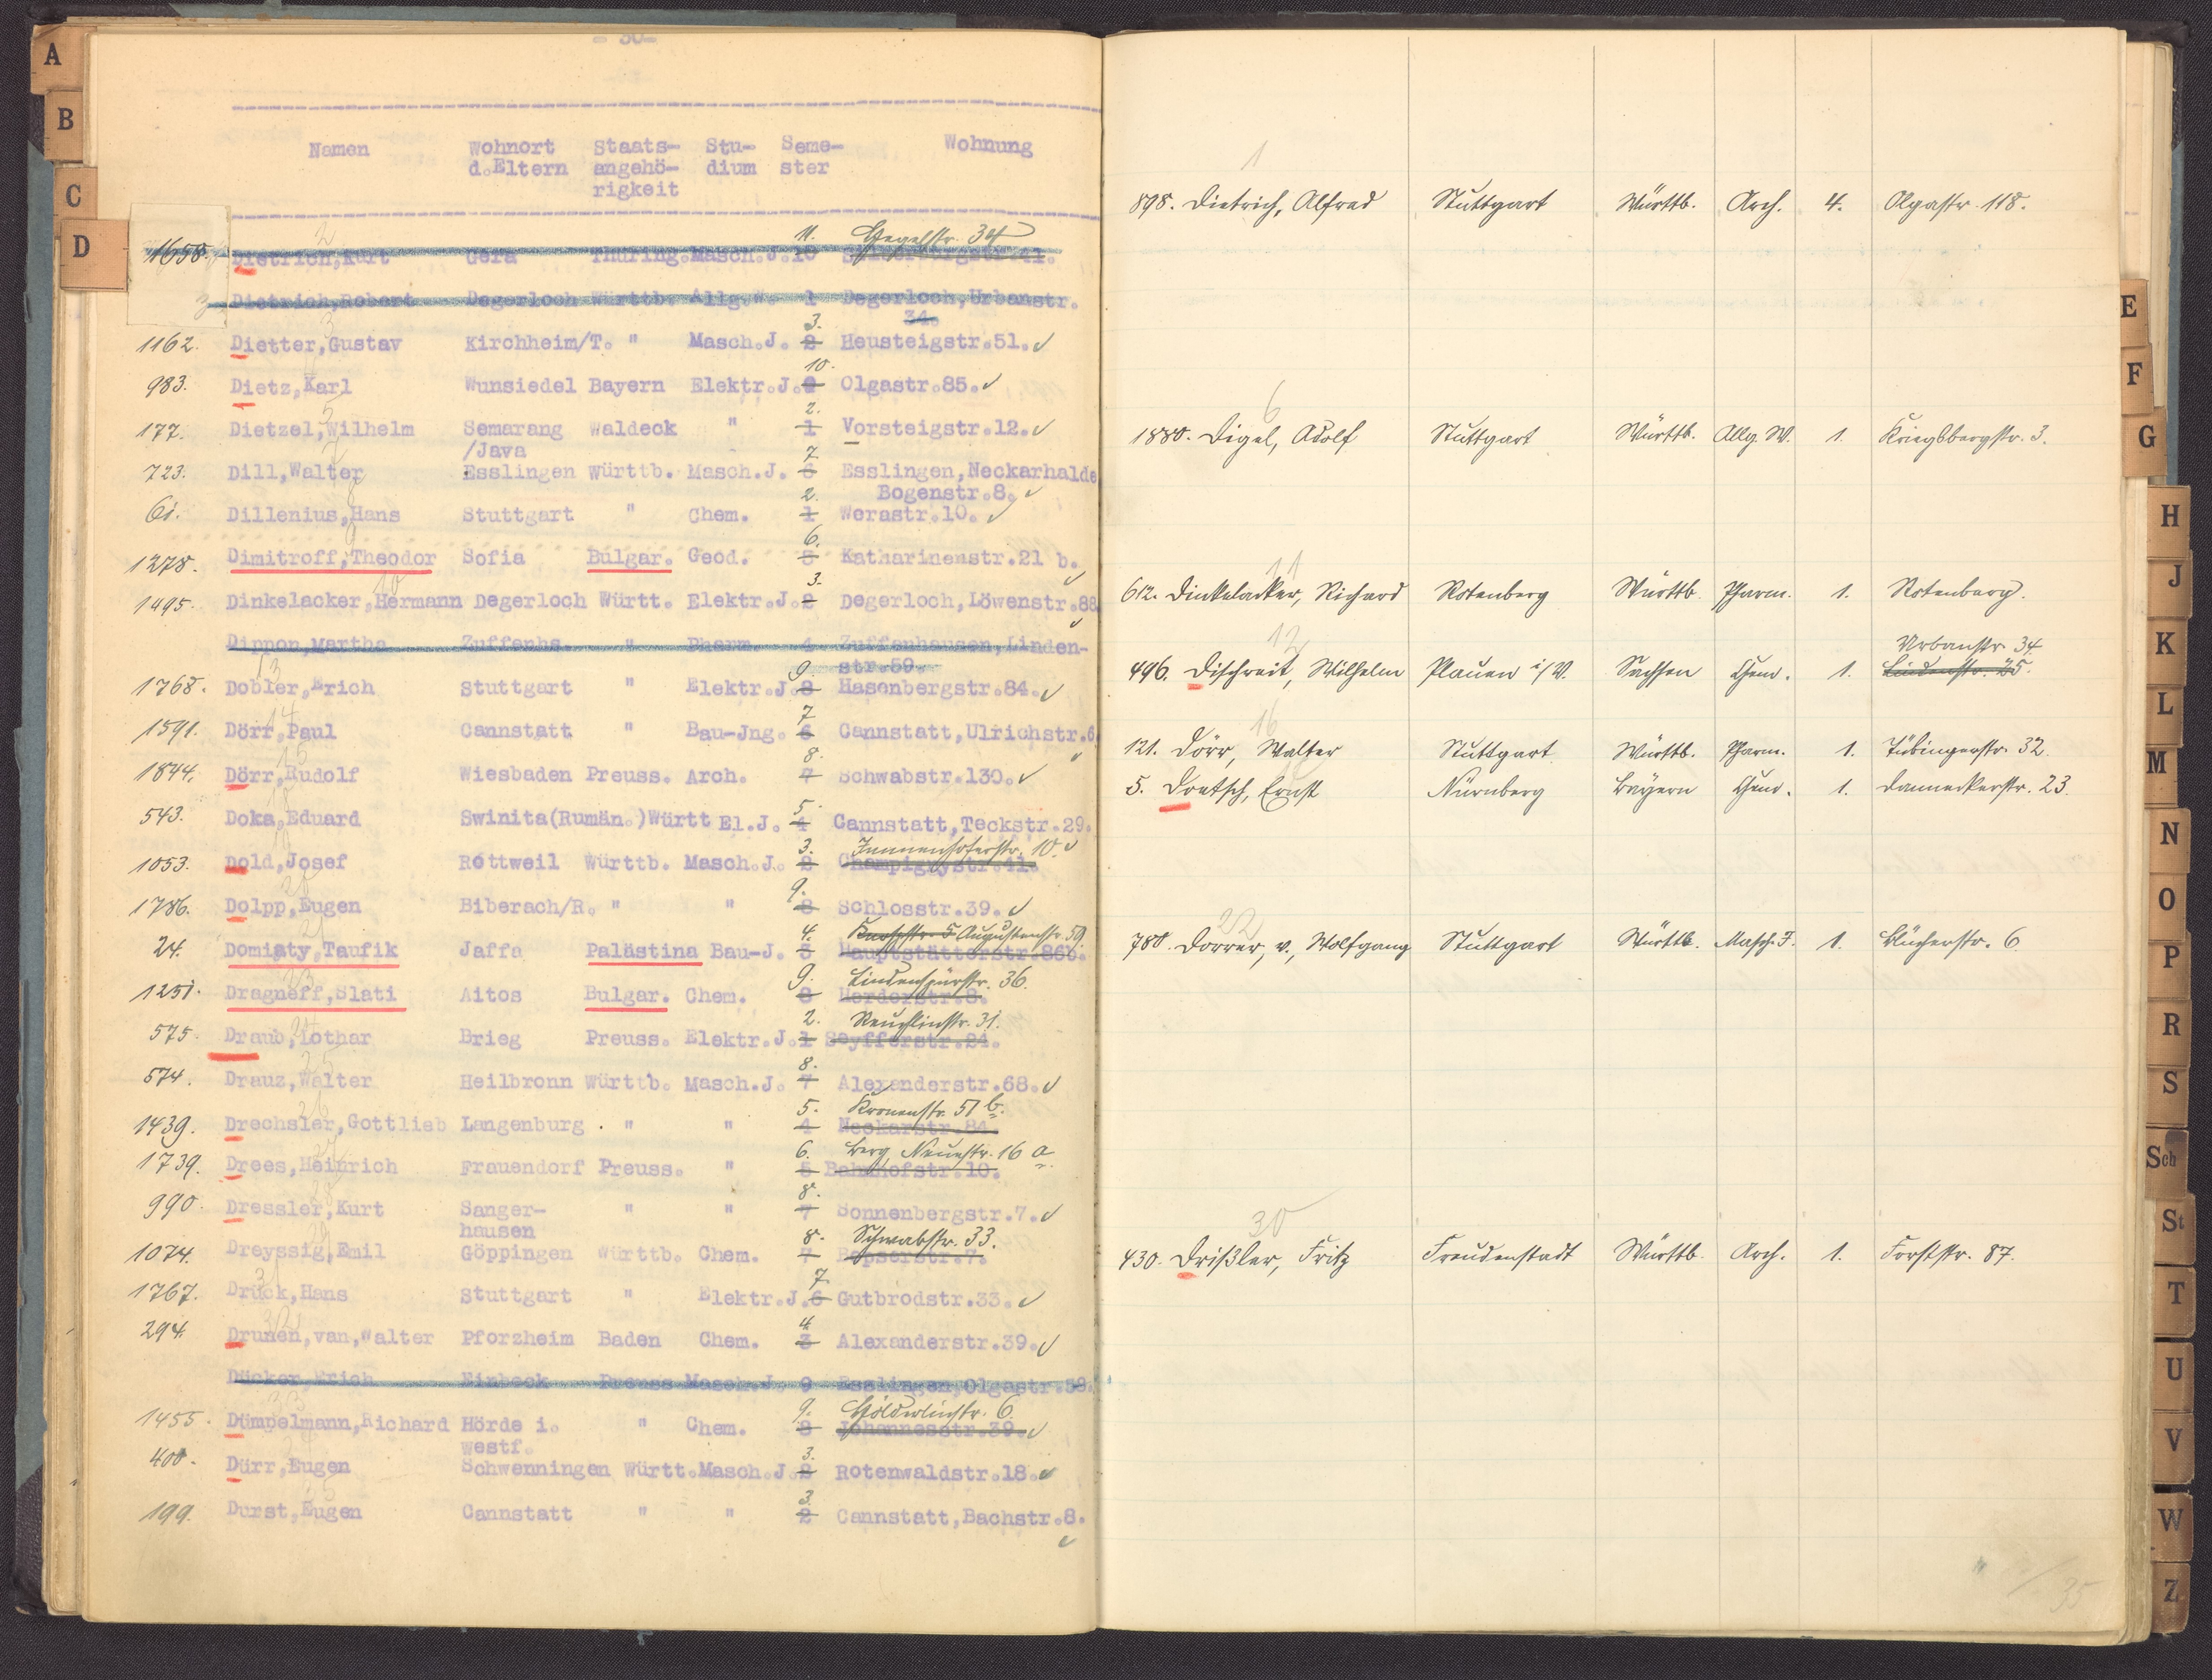 A
B
C
D
- 30 -
Namen Wohnort Staats- Stu- Seme- Wohnung
d.Eltern angehö- dium ster
rigkeit
2 11. Hegelstr. 34
1658. Dietrich,Kurt Gera Thüring.Masch.J.10
3 Dietrich,Robert Degerloch Württb. Allg.W. 1 Degerloch,Urbanstr.
34.
3 3.
1162. Dietter,Gustav Kirchheim/T. " Masch.J. 2 Heusteigstr.51.✓
10.
983. Dietz,Karl Wunsiedel Bayern Elektr.J.9 Olgastr.85.✓
5 2.
177. Dietzel,Wilhelm Semarang Waldeck " 1 Vorsteigstr.12.✓
/Java
7 7.
723. Dill,Walter Esslingen Württb. Masch.J. 6 Esslingen,Neckarhalde
Bogenstr.8.✓
8 2.
61. Dillenius,Hans Stuttgart " Chem. 1 Werastr.10.✓
9 6.
1278. Dimitroff,Theodor Sofia Bulgar. Geod. 5 Katharinenstr.21 b.✓
10 3.
1495. Dinkelacker,Hermann Degerloch Württ. Elektr.J.2 Degerloch,Löwenstr.88✓
Dippon,Martha Zuffenhs. " Pharm. 4 Zuffenhausen,Linden-
str.59.
13 9.
1768. Dobler,Erich Stuttgart " Elektr.J.8 Hasenbergstr.84.✓
14 7
1591. Dörr,Paul Cannstatt " Bau-Jng. 6 Cannstatt,Ulrichstr.6✓
15 8.
1844. Dörr,Rudolf Wiesbaden Preuss. Arch. 7 Schwabstr.130.✓
5.
543. Doka,Eduard Swinita(Rumän.)Württ El.J. 4 Cannstatt,Teckstr.29.
3. Immenhoferstr. 10.✓
1053. Dold,Josef Rottweil Württb. Masch.J. 2 Champignystr.41.
20 9.
1786. Dolpp,Eugen Biberach/R. " " 8 Schlosstr.39.✓
21 4. Augustenstr. 59.
24. Domiaty,Taufik Jaffa Palästina Bau-J. 3 Hauptstätterstr.86b.
23 9. Lindenspürstr. 36.
1251. Dragneff,Slati Aitos Bulgar. Chem. 8 Herderstr.8.
24 2. Reuchlinstr. 31.
575. Draub,Lothar Brieg Preuss. Elektr.J.1 Seyfferstr.24.
25 8.
574. Drauz,Walter Heilbronn Württb. Masch.J. 7 Alexanderstr.68.✓
26 5. Kronenstr. 51 b.
1439. Drechsler,Gottlieb Langenburg . " " 4 Neckarstr.84.
27 6. Berg, Neuestr. 16 a.
1739. Drees,Heinrich Frauendorf Preuss. " 5 Bahnhofstr.10.
28 8.
990. Dressler,Kurt Sanger- " " 7 Sonnenbergstr.7.✓
hausen
29 8. Schwabstr. 33.
1074. Dreyssig,Emil Göppingen Württb. Chem. 7 Bopserstr.7.
31 7.
1767. Drück,Hans Stuttgart " Elektr.J.6 Gutbrodstr.33.✓
32 4.
294. Drunen,van,Walter Pforzheim Baden Chem. 3 Alexanderstr.39.✓
Dücker,Erich Einbeck Preuss Masch.J. 9 Esslingen,Olgastr.58.
33 9. Hölderlinstr. 6.
1455. Dümpelmann,Richard Hörde i. " Chem. 8 Johannesstr.39.✓
Westf.
34 3.
400. Dürr,Eugen Schwenningen Württ.Masch.J.2 Rotenwaldstr.18.✓
35 3.
199. Durst,Eugen Cannstatt " " 2 Cannstatt,Bachstr.8.
✓
1
898. Dietrich, Alfred Stuttgart Württb. Arch. 4. Olgastr. 118.
6
1880. Digel, Adolf Stuttgart Württb. Allg. W. 1. Kriegsbergstr. 3.
11
612. Dinkelacker, Richard Rotenberg Württb. Pharm. 1. Rotenberg.
12 Urbanstr. 34
496. Dischreit, Wilhelm Plauen i/V. Sachsen Chem. 1. Lindenstr. 25.
16
121. Dörr, Walter Stuttgart Württb. Pharm. 1. Tübingerstr. 32.
5. Doetsch, Ernst Nürnberg Bayern Chem. 1. Danneckerstr. 23.
22
780. Dorrer, v., Wolfgang Stuttgart Württb. Masch. J. 1. Blücherstr. 6
30
430. Drißler, Fritz Freudenstadt Württb. Arch. 1. Forststr. 87.
35
E
F
G
H
J
K
L
M
N
O
P
R
S
Sch
St
T
U
V
W
Z